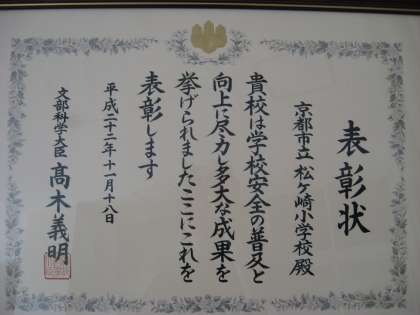 表彰状
京都市立 松ヶ崎小学校 殿
貴校は学校安全の普及と
向上に尽力し多大な成果を
挙げられましたここにこれを
表彰します
平成二十二年十一月十八日
文部科学大臣 髙木義明